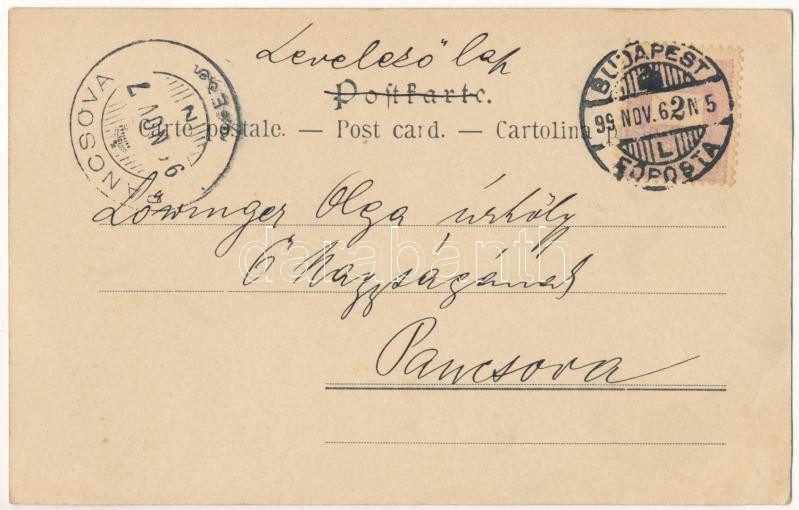 Levelező lap
Postkarte.
Carte postale. — Post card. — Cartolina
BUDAPEST
99 NOV. 6 2 N 5
L
FŐPOSTA
PANCSOVA
NOV 7
Löwinger Olga úrhölgy
Ő Nagyságának
Pancsova
darabanth